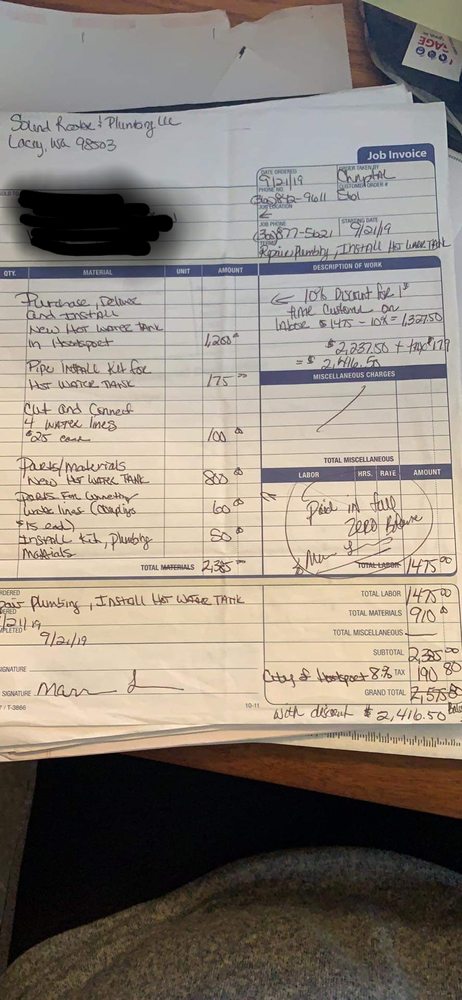 Sound Rooter & Plumbing LLC
Lacey, WA 98503
Job Invoice
SOLD TO
DATE ORDERED
9/21/19
ORDER TAKEN BY
PHONE NO.
CUSTOMER ORDER #
JOB LOCATION
JOB PHONE
(360) 877-5621
STARTING DATE
9/21/19
TERMS
Repair Plumbing, Install Hot Water Tank
QTY. MATERIAL UNIT AMOUNT
DESCRIPTION OF WORK
Purchase, Deliver
and Install
New Hot Water Tank
in Hoodsport 1,200
Pipe Install Kit for
Hot Water Tank 175 00
Cut and Connect
4 Water lines
$25 each 100
Parts/Materials
New Hot Water Tank 800
Parts For Connecting
water lines (Couplings
$15 each) 60
Install Kit, Plumbing
Materials 50
TOTAL MATERIALS 2,385 00
← 10% Discount for 1st
time Customer on
labor $1475 - 10% = 1,327.50
$2,237.50 + tax $179
= $2,416.50
MISCELLANEOUS CHARGES
TOTAL MISCELLANEOUS
LABOR HRS. RATE AMOUNT
Paid in full
Zero Balance
TOTAL LABOR 1475 00
ORDERED
Plumbing, Install Hot Water Tank
9/21/19
SIGNATURE
SIGNATURE
TOTAL LABOR 1475 00
TOTAL MATERIALS 910
TOTAL MISCELLANEOUS
SUBTOTAL 2,385 00
City of Hoodsport 8% TAX 190 80
GRAND TOTAL 2,575 80
T-3866
10-11
with discount $2,416.50